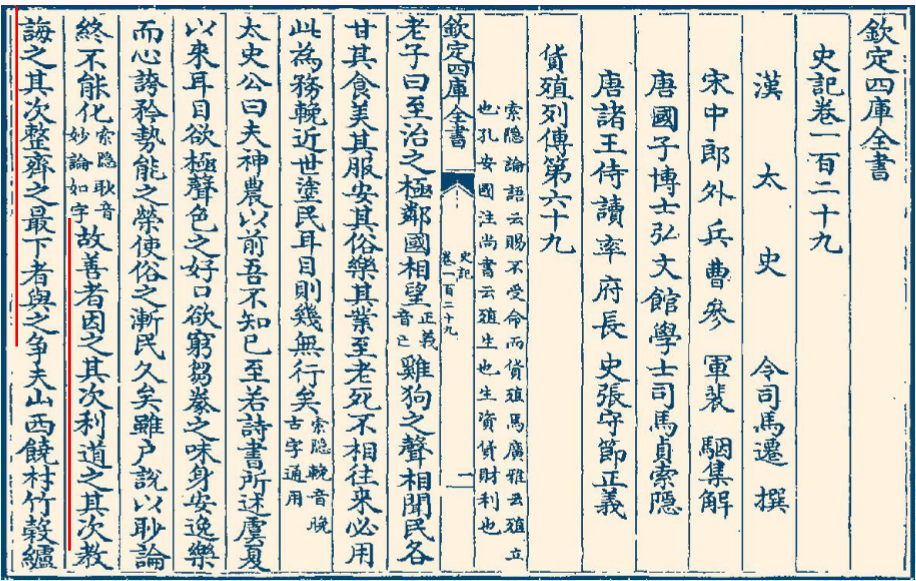 欽定四庫全書
史記卷一百二十九
漢太史令司馬遷撰
宋中郎外兵曹參軍裴駰集解
唐國子博士弘文館學士司馬貞索隱
唐諸王侍讀率府長史張守節正義
貨殖列傳第六十九
索隱論語云賜不受命而貨殖焉廣雅云殖立
也孔安國注尚書云殖生也生資貨財利也
欽定四庫全書
史記
卷一百二十九
一
老子曰至治之極鄰國相望正義音亡雞狗之聲相聞民各
甘其食美其服安其俗樂其業至老死不相往來必用
此為務輓近世塗民耳目則幾無行矣索隱輓音晚古字通用
太史公曰夫神農以前吾不知已至若詩書所述虞夏
以來耳目欲極聲色之好口欲窮芻豢之味身安逸樂
而心誇矜勢能之榮使俗之漸民久矣雖户說以眇論
終不能化索隱眇音妙論如字故善者因之其次利道之其次教
誨之其次整齊之最下者與之争夫山西饒材竹榖纑